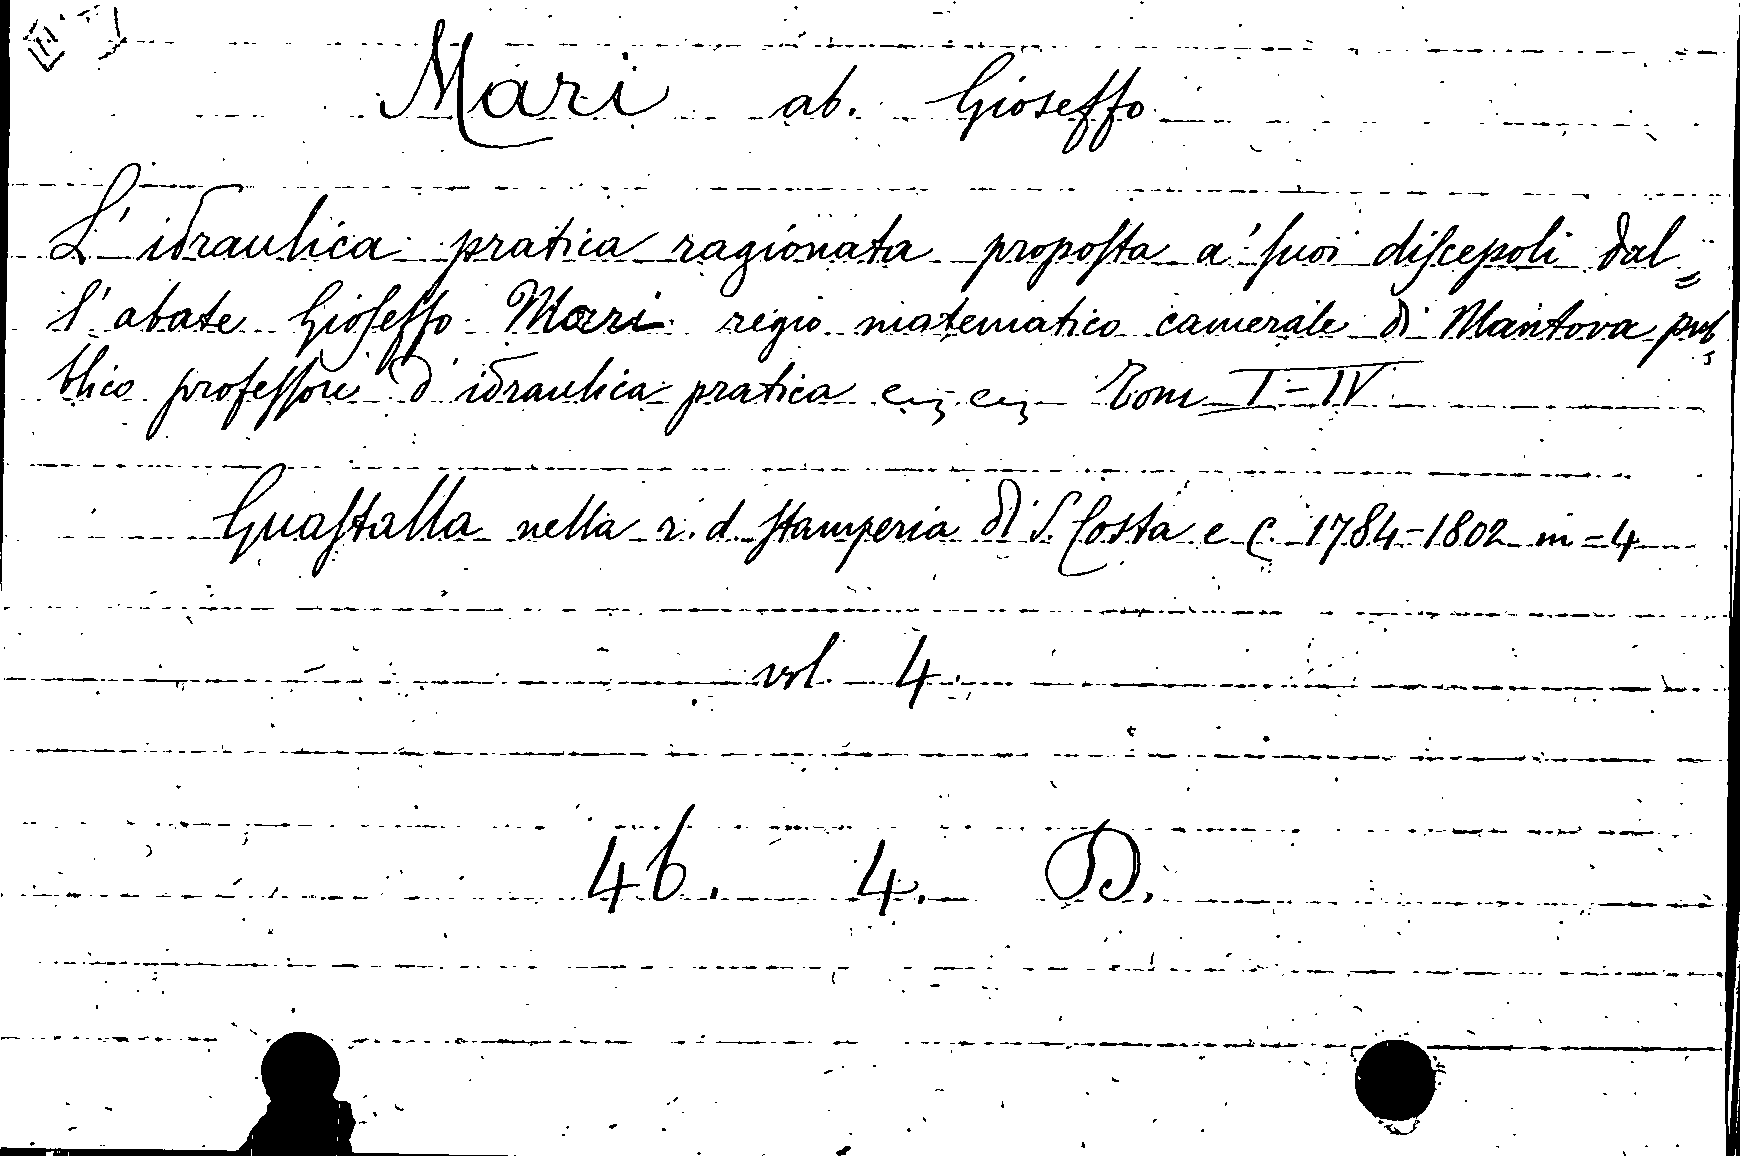 Mari ab. Gioseffo
L'idraulica pratica ragionata propoſta a' ſuoi diſcepoli dal=
l'abate Gioſeffo Mari regio matematico camerale di Mantova pub
blico profeſſore d'idraulica pratica ec. ec. Tom I-IV
Guaſtalla nella r. d. ſtamperia di S. Costa e C. 1784-1802 in=4
vol. 4.
46. 4. D.